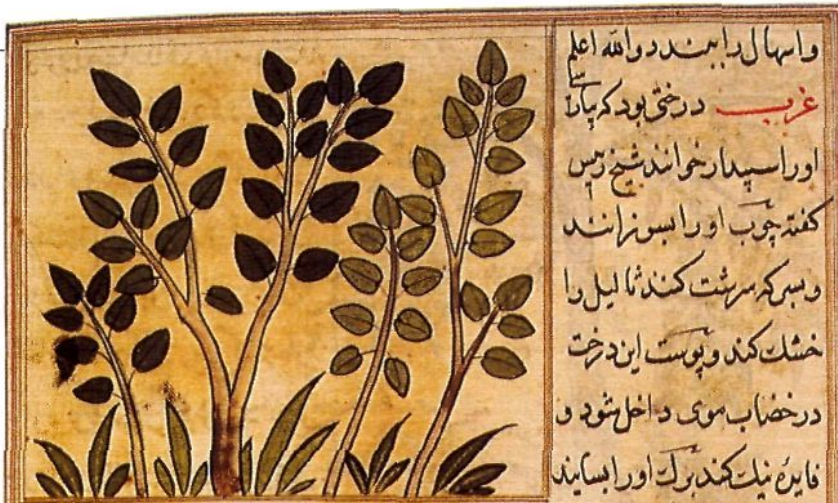 واسهال را ببندد والله اعلم
غرب درختی بود که پارسا
اورا سپیدار خوانند شیخ رییس
کفته چوب اورا بسوزانند
وبسرکه سرشت کنند ثالیل را
خشک کند وپوست این درخت
در خضاب موی داخل شود و
فایده نیک کند برک اورا بسایند